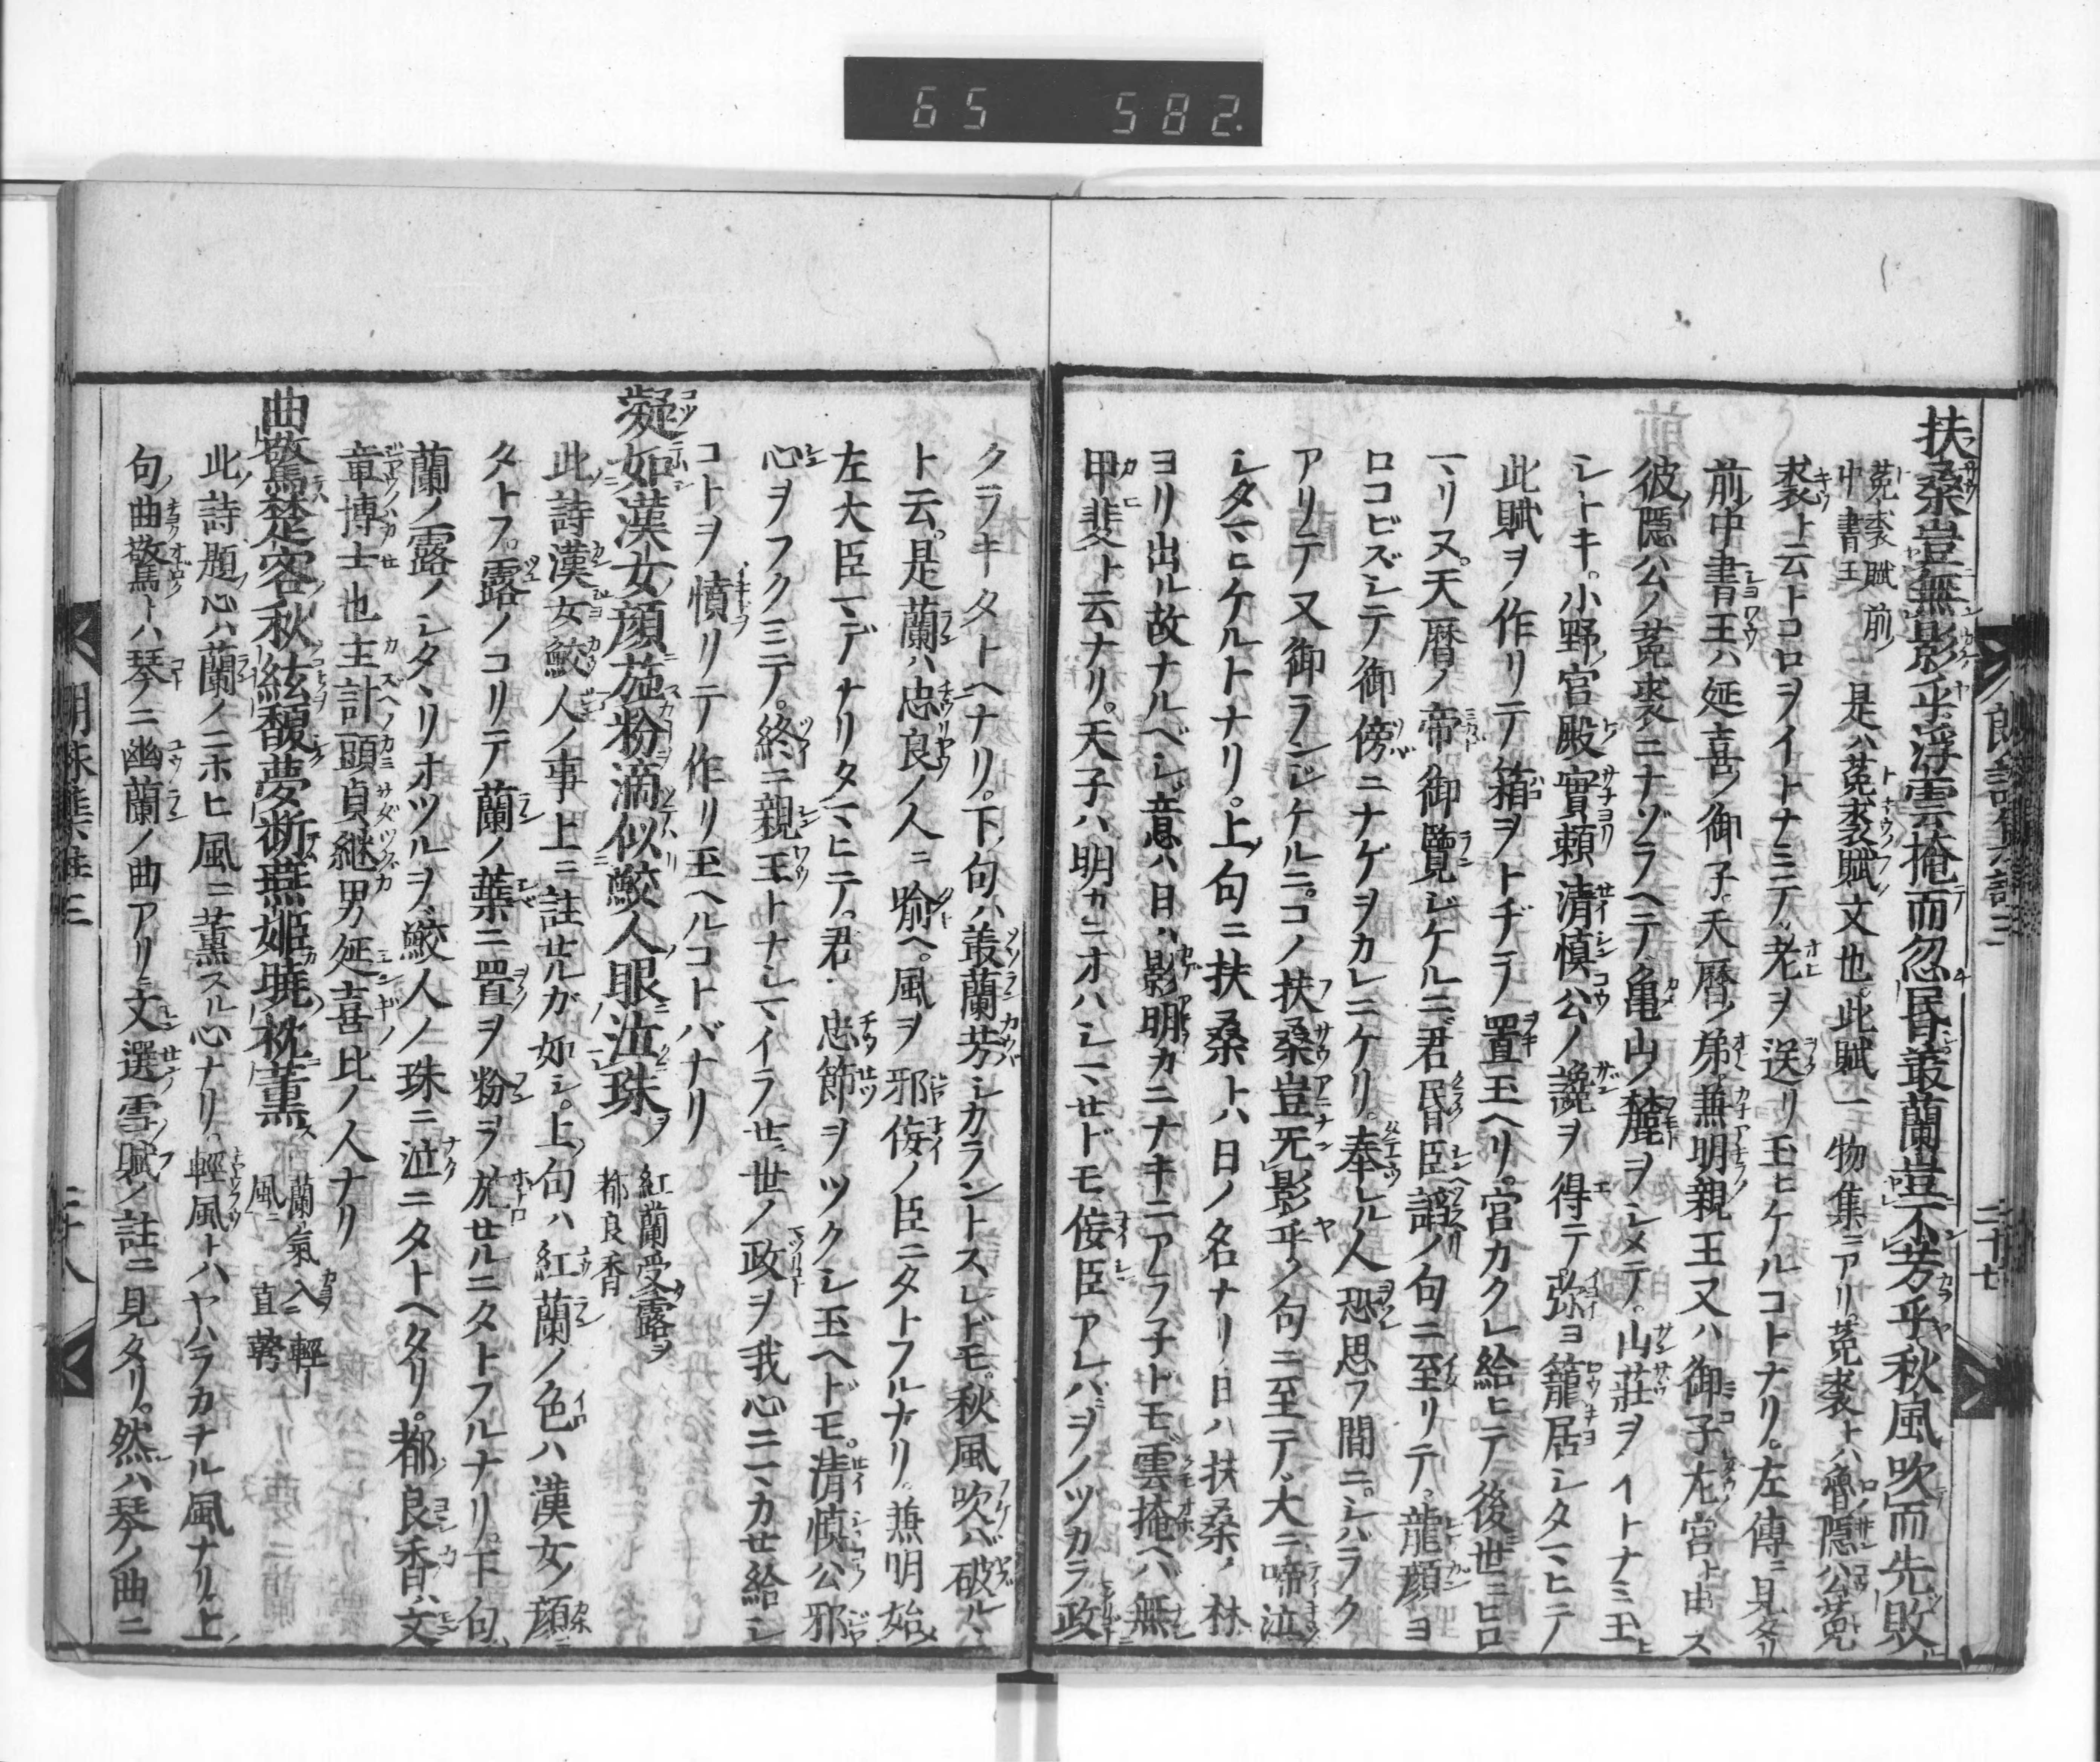 65 582
扶桑豈無影乎浮雲掩而忽昏叢蘭豈不芳乎秋風吹而先敗
菟裘賦 前
中書王
是ハ菟裘賦文也此賦一物集ニアリ菟裘トハ魯隠公菟
裘ト云トコロヲイトナミテ老ヲ送リ玉ヒケルコトナリ左傳ニ見タリ
前中書王ハ延喜ノ御子天暦ノ弟兼明親王又ハ御子左宮ト申ス
彼隠公ノ菟裘ニナゾラヘテ亀山ノ麓ヲシメテ山荘ヲイトナミ玉
シトキ小野宮殿實頼清慎公ノ讒ヲ得テ弥ヨ籠居シタマヒテ
此賦ヲ作リテ箱ヲトヂテ置玉ヘリ宮カクレ給ヒテ後世ニヒロ
マリヌ天暦ノ帝御覽ジケルニ君昏臣諛ノ句ニ至リテ龍顔ヨ
ロコビズシテ御傍ニナゲヲカレニケリ奉レル人恐思フ間ニシバラク
アリテ又御ランジケルニコノ扶桑豈无影乎ノ句ニ至テ大ニ啼泣
シタマヒケルトナリ上句ニ扶桑トハ日ノ名ナリ日ハ扶桑ノ林
ヨリ出ル故ナルベシ意ハ日ハ影明カニナキニアラ子トモ雲掩ヘハ無
甲斐ト云ナリ天子ハ明カニオハシマセドモ侫臣アレバヲノツカラ政
クラキタトヘナリ下句ハ叢蘭芳シカラントスレドモ秋風吹バ破ル
ト云是蘭ハ忠良ノ人ニ喩ヘ風ヲ邪侫ノ臣ニタトフルナリ兼明始
左大臣マデナリタマヒテ君忠節ヲツクシ玉ヘドモ清慎公邪
心ヲフクミテ終ニ親王トナシマイラセ世ノ政ヲ我心ニマカせ給シ
コトヲ憤リテ作リ玉ヘルコトバナリ
凝如漢女顔施粉滴似鮫人眼泣珠 紅蘭受露
都良香
此詩漢女鮫人ノ事上ニ註せルガ如シ上句ハ紅蘭ノ色ハ漢女ノ顔
タトフ露ノコリテ蘭ノ葉ニ置ヲ粉ヲ施せルニタトフルナリ下句
蘭ノ露ノシタヽリオツルヲ鮫人ノ珠ニ泣ニタトヘタリ都良香ハ文
章博士也主計頭貞継男延喜比ノ人ナリ
曲驚楚客秋絃馥夢断燕姫暁枕薫 蘭氣入輕
風 直幹
此詩題心ハ蘭ノニホヒ風ニ薫スル心ナリ輕風トハヤハラカナル風ナリ上
句曲驚トハ琴ニ幽蘭ノ曲アリ文選雪賦ノ註ニ見タリ然ハ琴ノ曲ニ